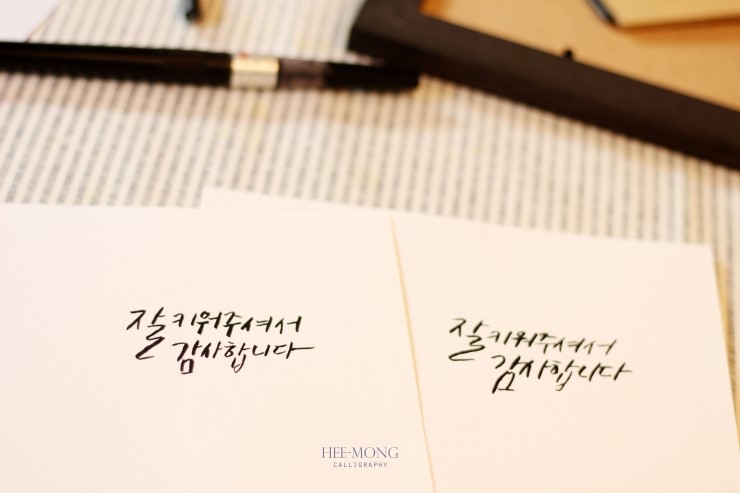 잘 키워주셔서
감사합니다
잘 키워주셔서
감사합니다
HEE-MONG
CALLIGRAPHY